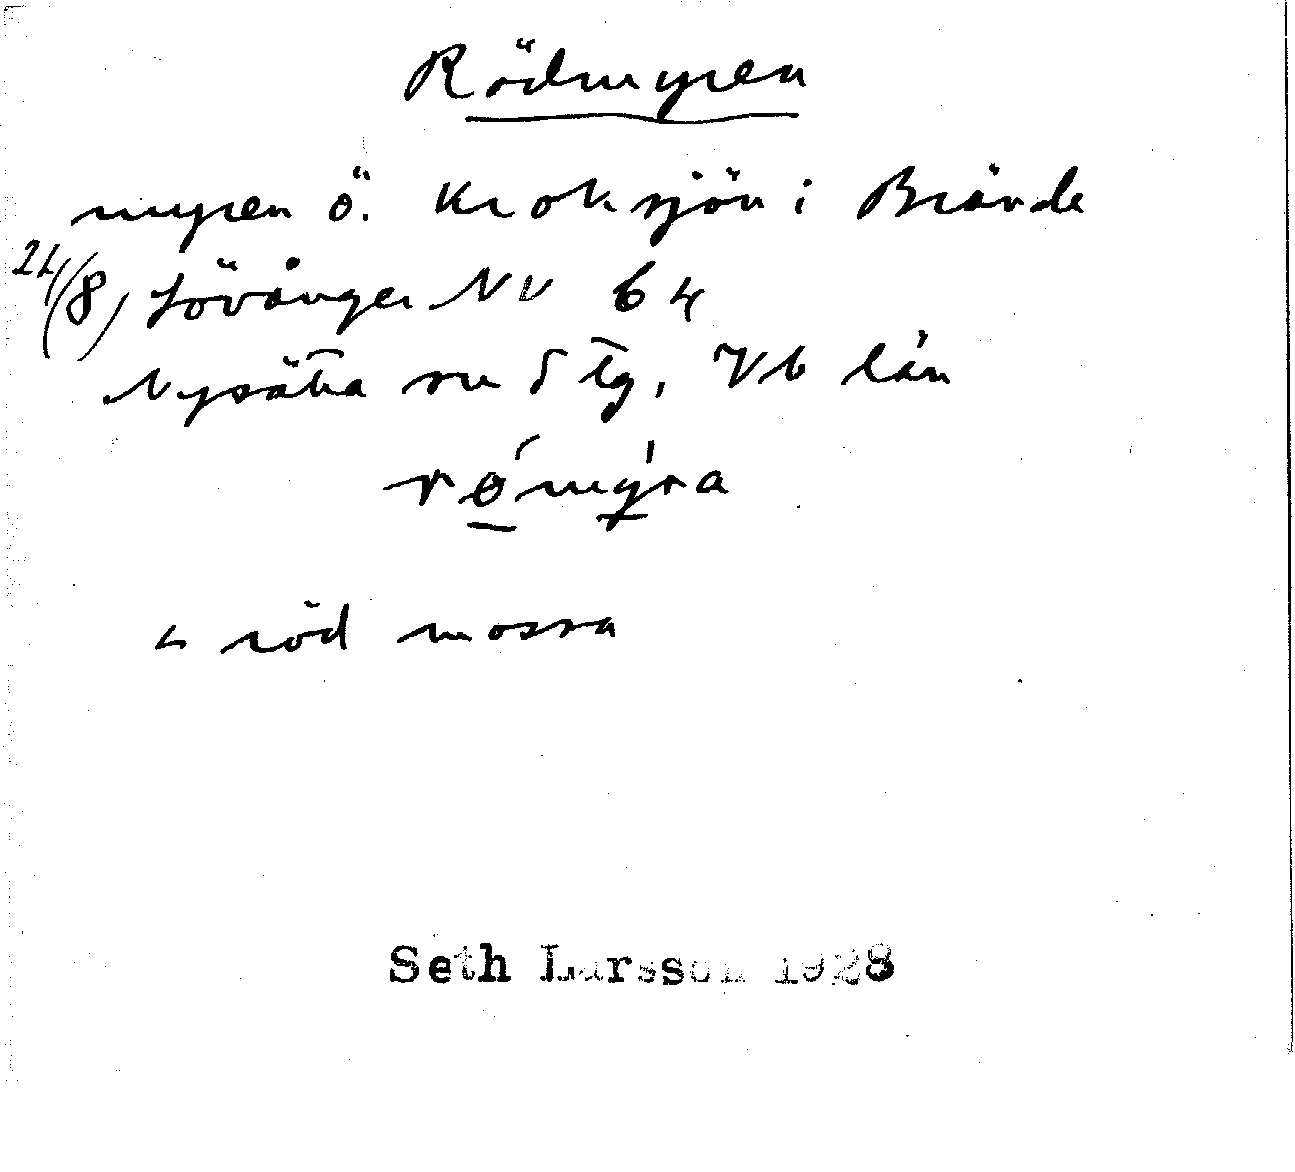 Rödmyren
myren ö. Kroksjön i Brände
21/(8) Lövånger NV 64
Nysätra sn S tg, Vb län
rø´my`ra
röd mossa
Seth Larsson 1928